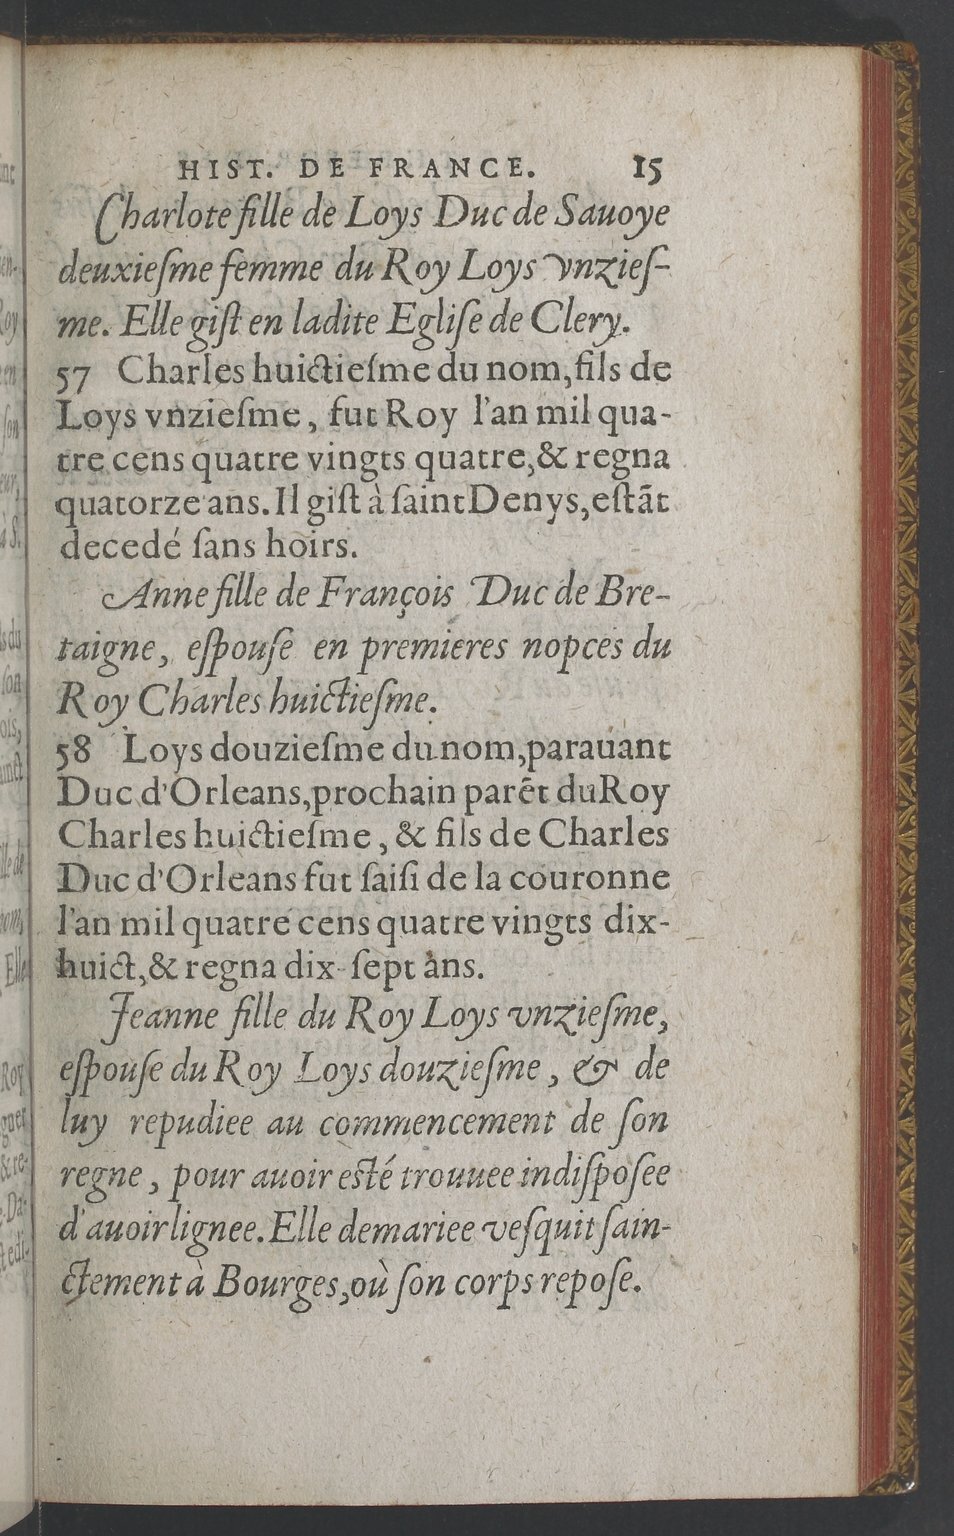 HIST. DE FRANCE. 15
Charlote fille de Loys Duc de Sauoye
deuxieſme femme du Roy Loys vnzieſ-
me. Elle giſt en ladite Egliſe de Clery.
57 Charles huictieſme du nom, fils de
Loys vnzieſme, fut Roy l'an mil qua-
tre cens quatre vingts quatre, & regna
quatorze ans. Il giſt à ſaint Denys, eſtāt
decedé ſans hoirs.
Anne fille de François Duc de Bre-
taigne, eſpouſe en premieres nopces du
Roy Charles huictieſme.
58 Loys douzieſme du nom, parauant
Duc d'Orleans, prochain parēt du Roy
Charles huictieſme, & fils de Charles
Duc d'Orleans fut ſaiſi de la couronne
l'an mil quatre cens quatre vingts dix-
huict, & regna dix-ſept ans.
Jeanne fille du Roy Loys vnzieſme,
eſpouſe du Roy Loys douzieſme, & de
luy repudiee au commencement de ſon
regne, pour auoir eſté trouuee indiſpoſee
d'auoir lignee. Elle demariee veſquit ſain-
ctement à Bourges, où ſon corps repoſe.